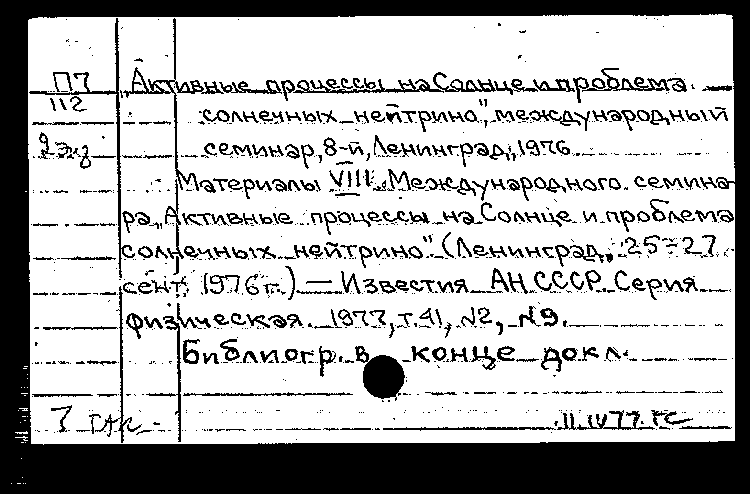 П7 „Активные процессы на Солнце и проблема
112 солнечных нейтрино", международный
2 экз семинар, 8-й, Ленинград, 1976
Материалы VIII Международного семина-
ра „Активные процессы на Солнце и проблема
солнечных нейтрино" (Ленинград, 25-27
сент. 1976 г.) — Известия АН СССР. Серия
физическая. 1977, т. 41, №2, №9.
Библиогр. в конце докл.
7
II.IV 77. ГС